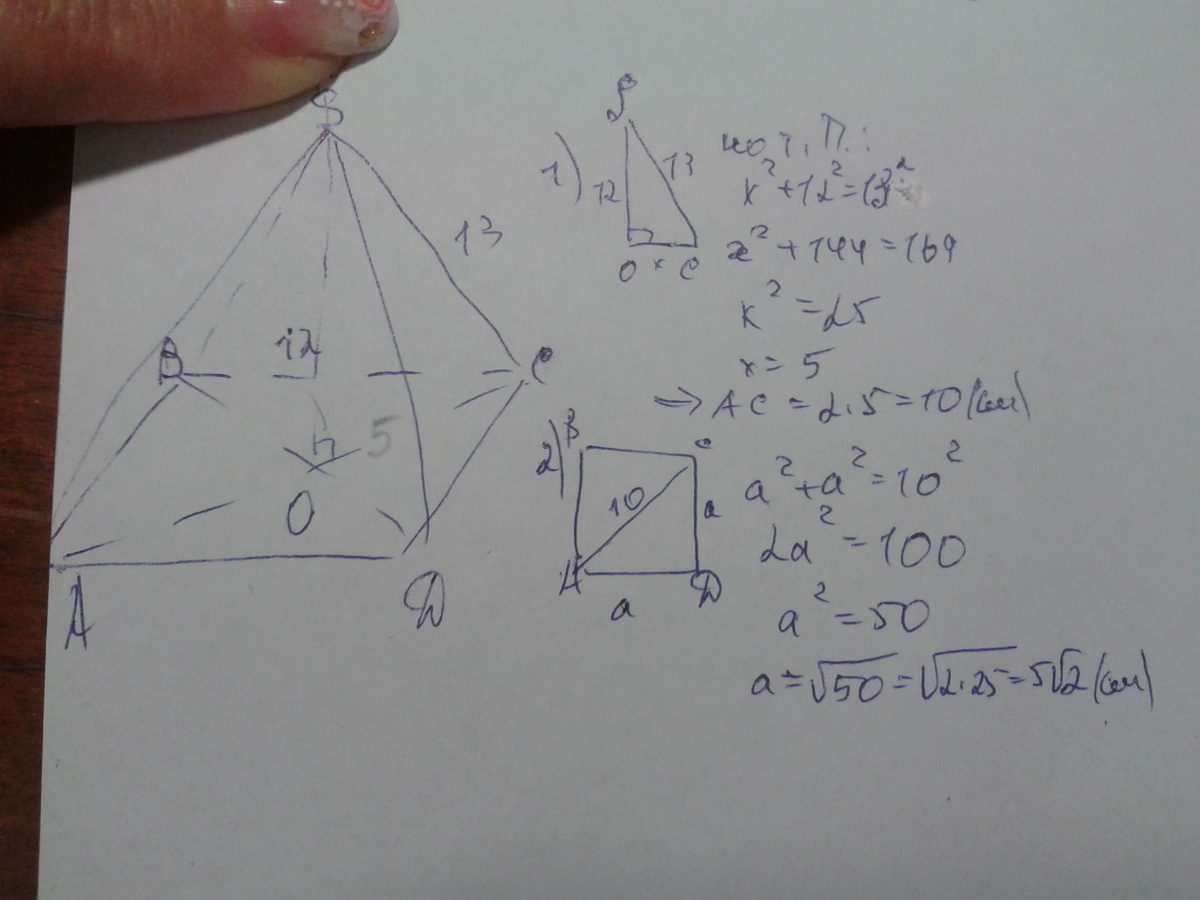 S
13
B
12
C
5
O
A
D
1)
S
12
13
O x C
по т. П.:
x² + 12² = 13²
x² + 144 = 169
x² = 25
x = 5
⇒ AC = 2·5 = 10 (см)
2)
B
C
10
a
A
D
a
a² + a² = 10²
2a² = 100
a² = 50
a = √50 = √2·25 = 5√2 (см)